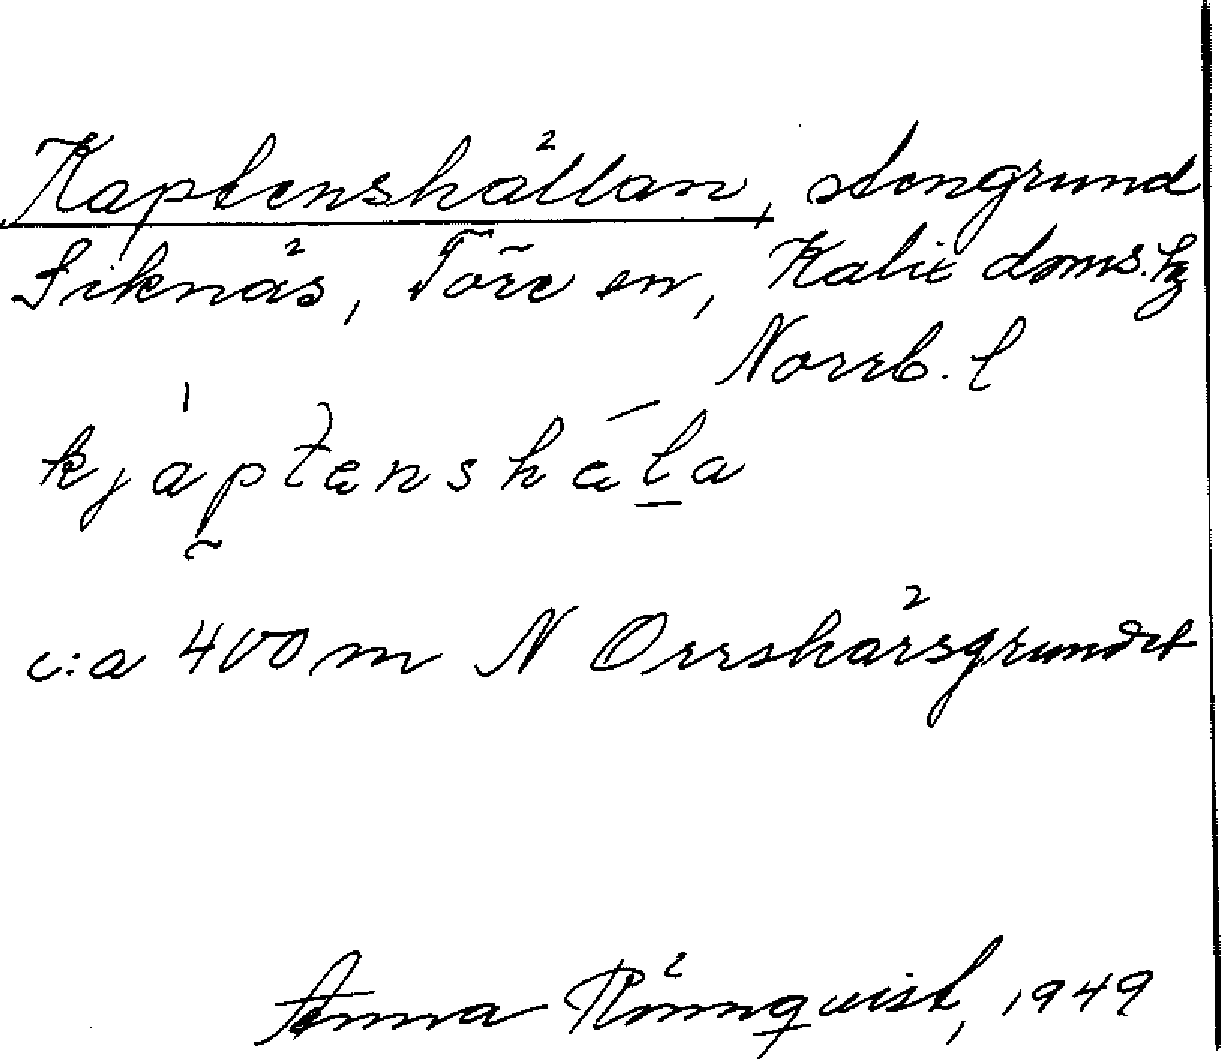 Kaptenshällan, stengrund
Siknäs, Töre sn, Kalix doms.hg
Norrb. l
kjáptænshǽla
c:a 400 m N Orrskärsgrundet
Anna Rönnqvist, 1949